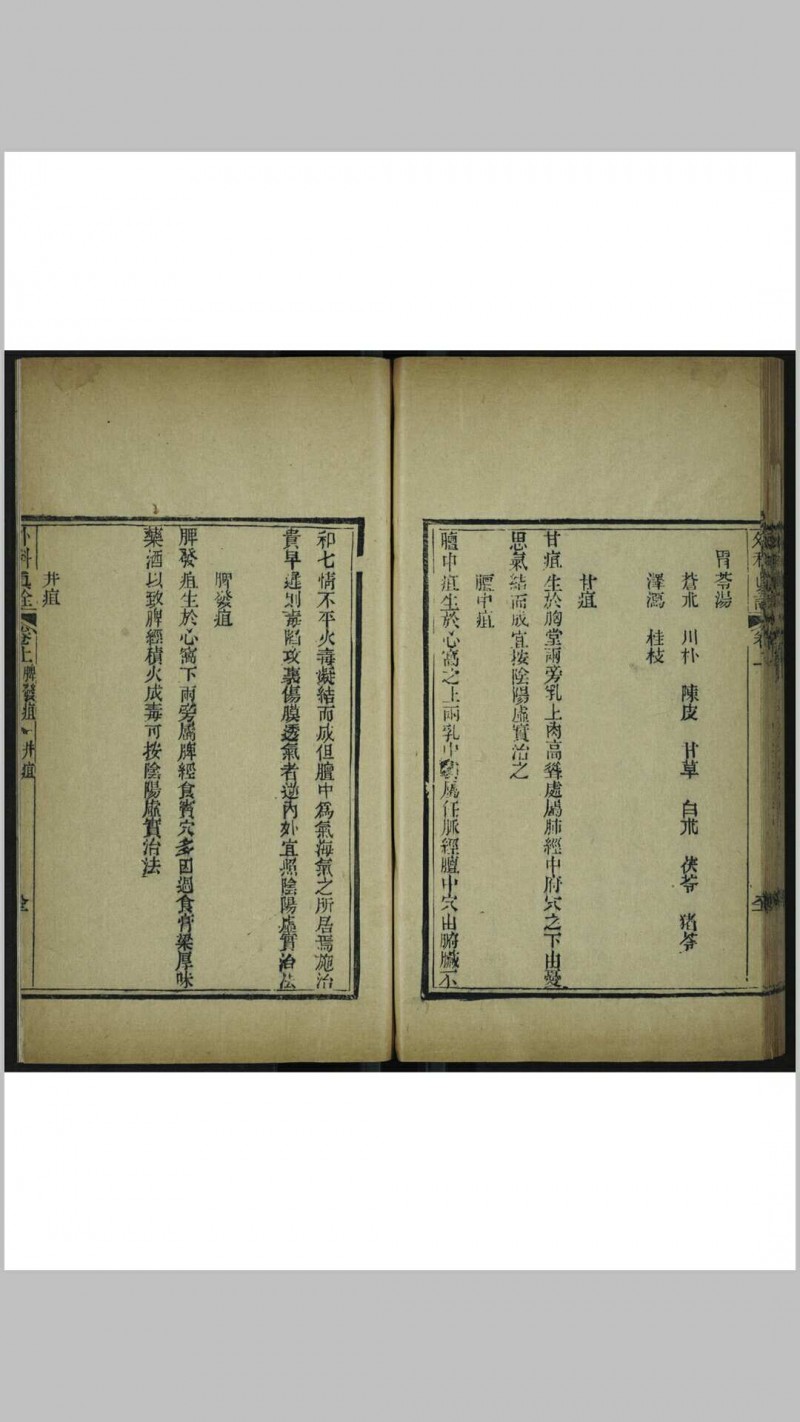 胃苓湯
蒼朮 川朴 陳皮 甘草 白朮 茯苓 猪苓
澤瀉 桂枝
甘疽
甘疽生於胸堂兩旁乳上肉高聳處屬肺經中府穴之下由憂
思氣結而成宜按陰陽虛實治之
膻中疽
膻中疽生於心窩之上兩乳中屬任脈經膻中穴由腑臟不
和七情不平火毒凝結而成但膻中為氣海氣之所居焉施治
貴早遲則毒陷攻裏傷膜透氣者逆內外宜照陰陽虛實治法
脾發疽
脾發疽生於心窩下兩旁屬脾經食竇穴多因過食膏粱厚味
藥酒以致脾經積火成毒可按陰陽虛實治法
井疽
外科真詮 卷上 脾發疽 井疽